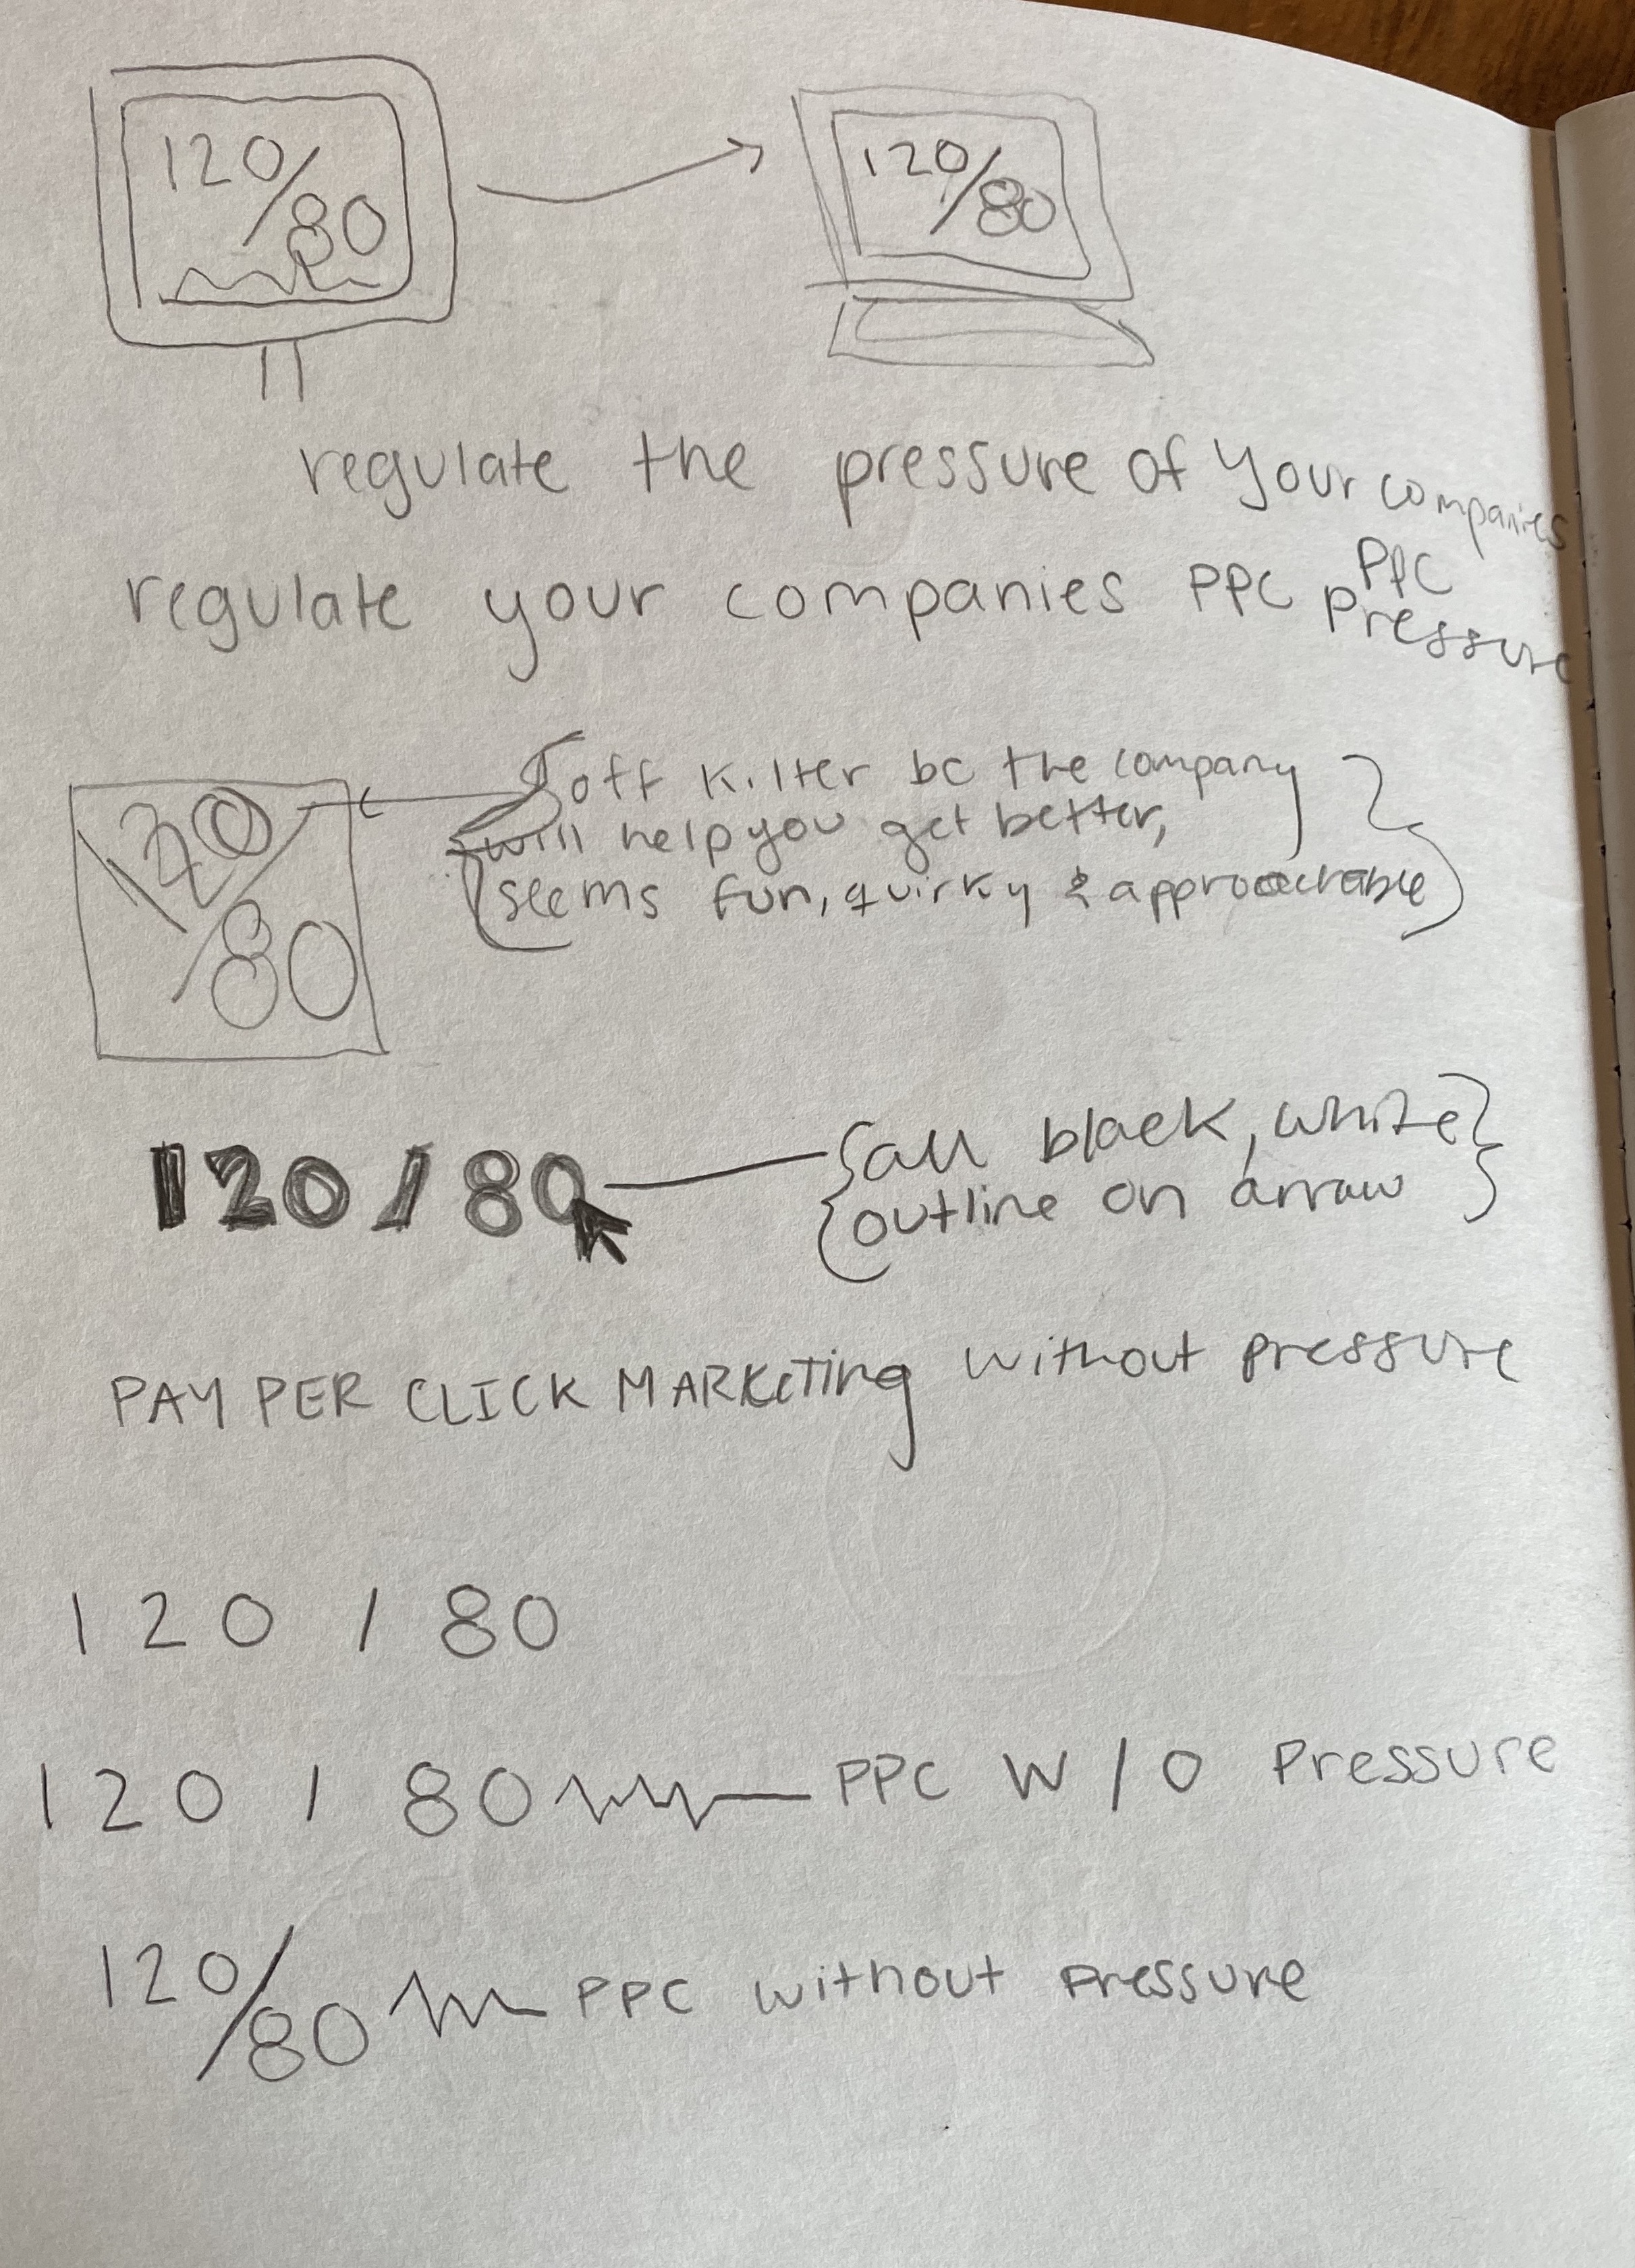 120/80
120/80
regulate the pressure of your companies
PPC
regulate your companies PPC pressure
120/80
off kilter bc the company
will help you get better,
seems fun, quirky & approachable
120/80
all black, white
outline on arrow
PAY PER CLICK MARKETing without pressure
120/80
120/80 PPC W/O Pressure
120/80 PPC without pressure